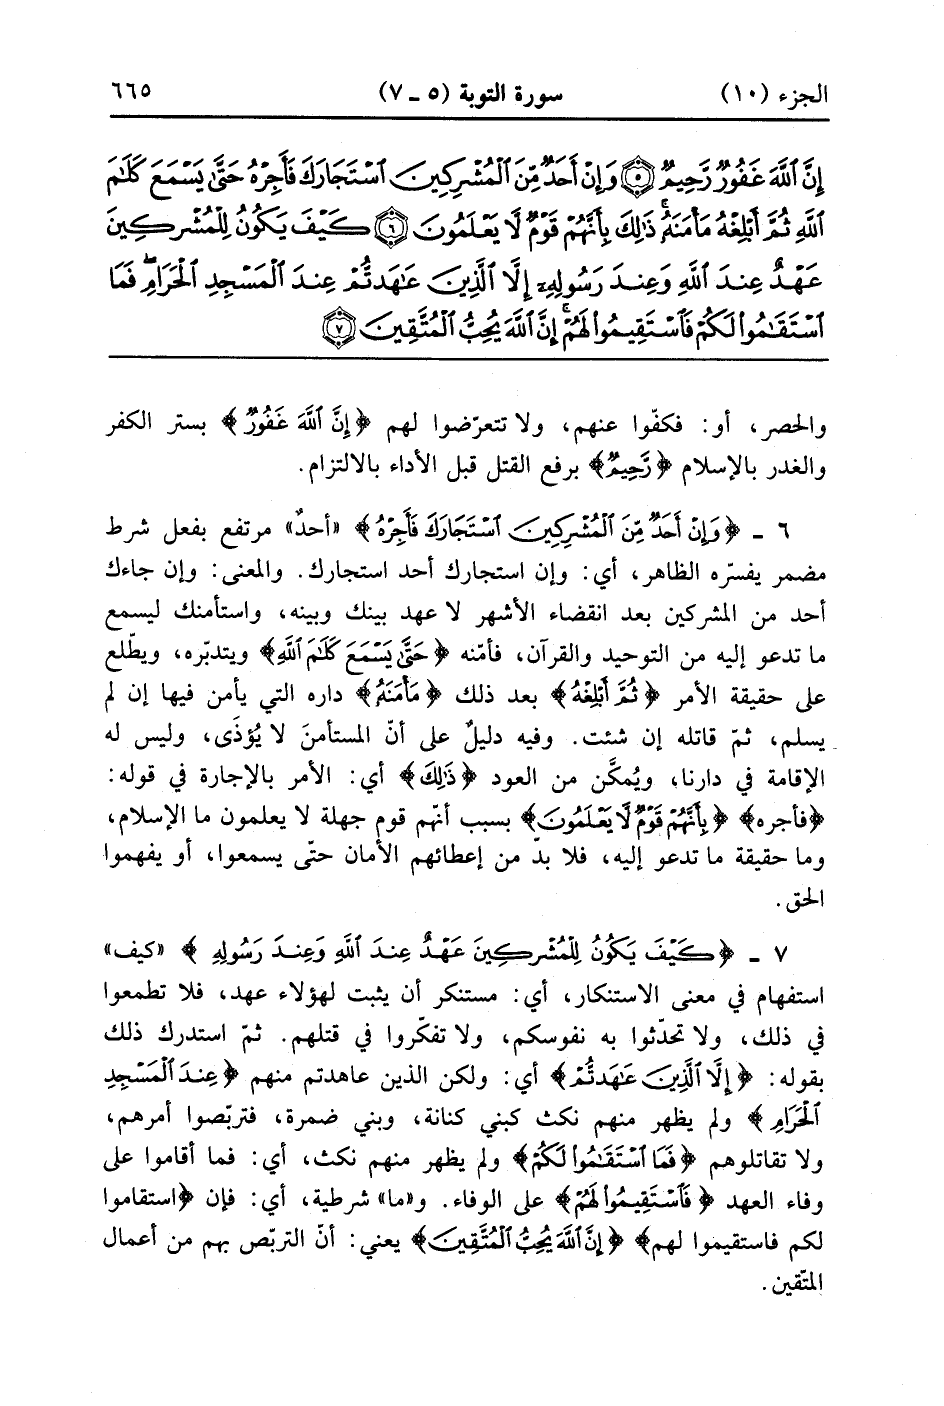 الجزء (١٠) سورة التوبة (٥ ـ ٧) ٦٦٥
إِنَّ ٱللَّهَ غَفُورٌ رَّحِيمٌ ٥ وَإِنْ أَحَدٌ مِّنَ ٱلْمُشْرِكِينَ ٱسْتَجَارَكَ فَأَجِرْهُ حَتَّىٰ يَسْمَعَ كَلَٰمَ
ٱللَّهِ ثُمَّ أَبْلِغْهُ مَأْمَنَهُۥ ۚ ذَٰلِكَ بِأَنَّهُمْ قَوْمٌ لَّا يَعْلَمُونَ ٦ كَيْفَ يَكُونُ لِلْمُشْرِكِينَ
عَهْدٌ عِندَ ٱللَّهِ وَعِندَ رَسُولِهِۦٓ إِلَّا ٱلَّذِينَ عَٰهَدتُّمْ عِندَ ٱلْمَسْجِدِ ٱلْحَرَامِ ۖ فَمَا
ٱسْتَقَٰمُوا۟ لَكُمْ فَٱسْتَقِيمُوا۟ لَهُمْ ۚ إِنَّ ٱللَّهَ يُحِبُّ ٱلْمُتَّقِينَ ٧
والحصر، أو: فكفّوا عنهم، ولا تتعرّضوا لهم ﴿إِنَّ ٱللَّهَ غَفُورٌ﴾ بستر الكفر
والغدر بالإسلام ﴿رَّحِيمٌ﴾ برفع القتل قبل الأداء بالالتزام.
٦ ـ ﴿وَإِنْ أَحَدٌ مِّنَ ٱلْمُشْرِكِينَ ٱسْتَجَارَكَ فَأَجِرْهُ﴾ «أحدٌ» مرتفع بفعل شرط
مضمر يفسّره الظاهر، أي: وإن استجارك أحد استجارك. والمعنى: وإن جاءك
أحد من المشركين بعد انقضاء الأشهر لا عهد بينك وبينه، واستأمنك ليسمع
ما تدعو إليه من التوحيد والقرآن، فأمّنه ﴿حَتَّىٰ يَسْمَعَ كَلَٰمَ ٱللَّهِ﴾ ويتدبّره، ويطّلع
على حقيقة الأمر ﴿ثُمَّ أَبْلِغْهُ﴾ بعد ذلك ﴿مَأْمَنَهُ﴾ داره التي يأمن فيها إن لم
يسلم، ثمّ قاتله إن شئت. وفيه دليلٌ على أنّ المستأمن لا يُؤذَى، وليس له
الإقامة في دارنا، ويُمكَّن من العود ﴿ذَٰلِكَ﴾ أي: الأمر بالإجارة في قوله:
﴿فأجره﴾ ﴿بِأَنَّهُمْ قَوْمٌ لَّا يَعْلَمُونَ﴾ بسبب أنّهم قوم جهلة لا يعلمون ما الإسلام،
وما حقيقة ما تدعو إليه، فلا بدّ من إعطائهم الأمان حتّى يسمعوا، أو يفهموا
الحق.
٧ ـ ﴿كَيْفَ يَكُونُ لِلْمُشْرِكِينَ عَهْدٌ عِندَ ٱللَّهِ وَعِندَ رَسُولِهِ﴾ «كيف»
استفهام في معنى الاستنكار، أي: مستنكر أن يثبت لهؤلاء عهد، فلا تطمعوا
في ذلك، ولا تحدّثوا به نفوسكم، ولا تفكّروا في قتلهم. ثمّ استدرك ذلك
بقوله: ﴿إِلَّا ٱلَّذِينَ عَٰهَدتُّمْ﴾ أي: ولكن الذين عاهدتم منهم ﴿عِندَ ٱلْمَسْجِدِ
ٱلْحَرَامِ﴾ ولم يظهر منهم نكث كبني كنانة، وبني ضمرة، فتربّصوا أمرهم،
ولا تقاتلوهم ﴿فَمَا ٱسْتَقَٰمُوا۟ لَكُمْ﴾ ولم يظهر منهم نكث، أي: فما أقاموا على
وفاء العهد ﴿فَٱسْتَقِيمُوا۟ لَهُمْ﴾ على الوفاء. و«ما» شرطية، أي: فإن ﴿استقاموا
لكم فاستقيموا لهم﴾ ﴿إِنَّ ٱللَّهَ يُحِبُّ ٱلْمُتَّقِينَ﴾ يعني: أنّ التربّص بهم من أعمال
المتّقين.